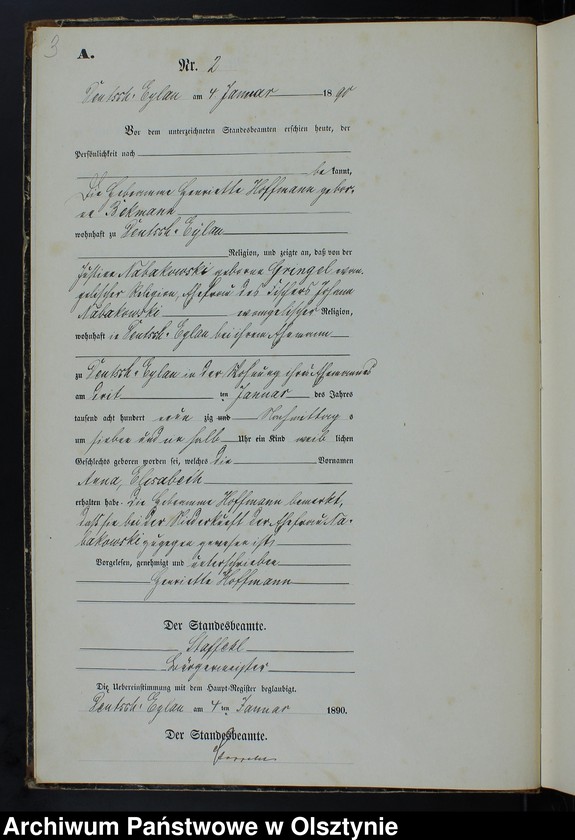 3
A.
Nr. 2
Deutsch Eylau am 4 Januar 1890
Vor dem unterzeichneten Standesbeamten erschien heute, der
Persönlichkeit nach
be kannt,
Die Hebeamme Henriette Hoffmann gebor-
ne Bekmann
wohnhaft zu Deutsch Eylau
Religion, und zeigte an, daß von der
Justine Nabakowski geborne Gringel evan-
gelischer Religion, Ehefrau des Fischers Johann
Nabakowski evangelischer Religion,
wohnhaft in Deutsch Eylau bei ihrem Ehemann
zu Deutsch Eylau in der Wohnung ihres Ehemannes
am drit ten Januar des Jahres
tausend acht hundert neun zig und Nachmittag s
um sieben und ein halb Uhr ein Kind weib lichen
Geschlechts geboren worden sei, welches die Vornamen
Anna, Elisabeth
erhalten habe. Die Hebeamme Hoffmann bemerkt,
daß sie bei der Niederkunft der Ehefrau Na-
bakowski zugegen gewesen ist
Vorgelesen, genehmigt und unterschrieben
Henriette Hoffmann
Der Standesbeamte.
Bürgermeister
Die Uebereinstimmung mit dem Haupt-Register beglaubigt.
Deutsch Eylau am 4 ten Januar 1890.
Der Standesbeamte.
Archiwum Państwowe w Olsztynie